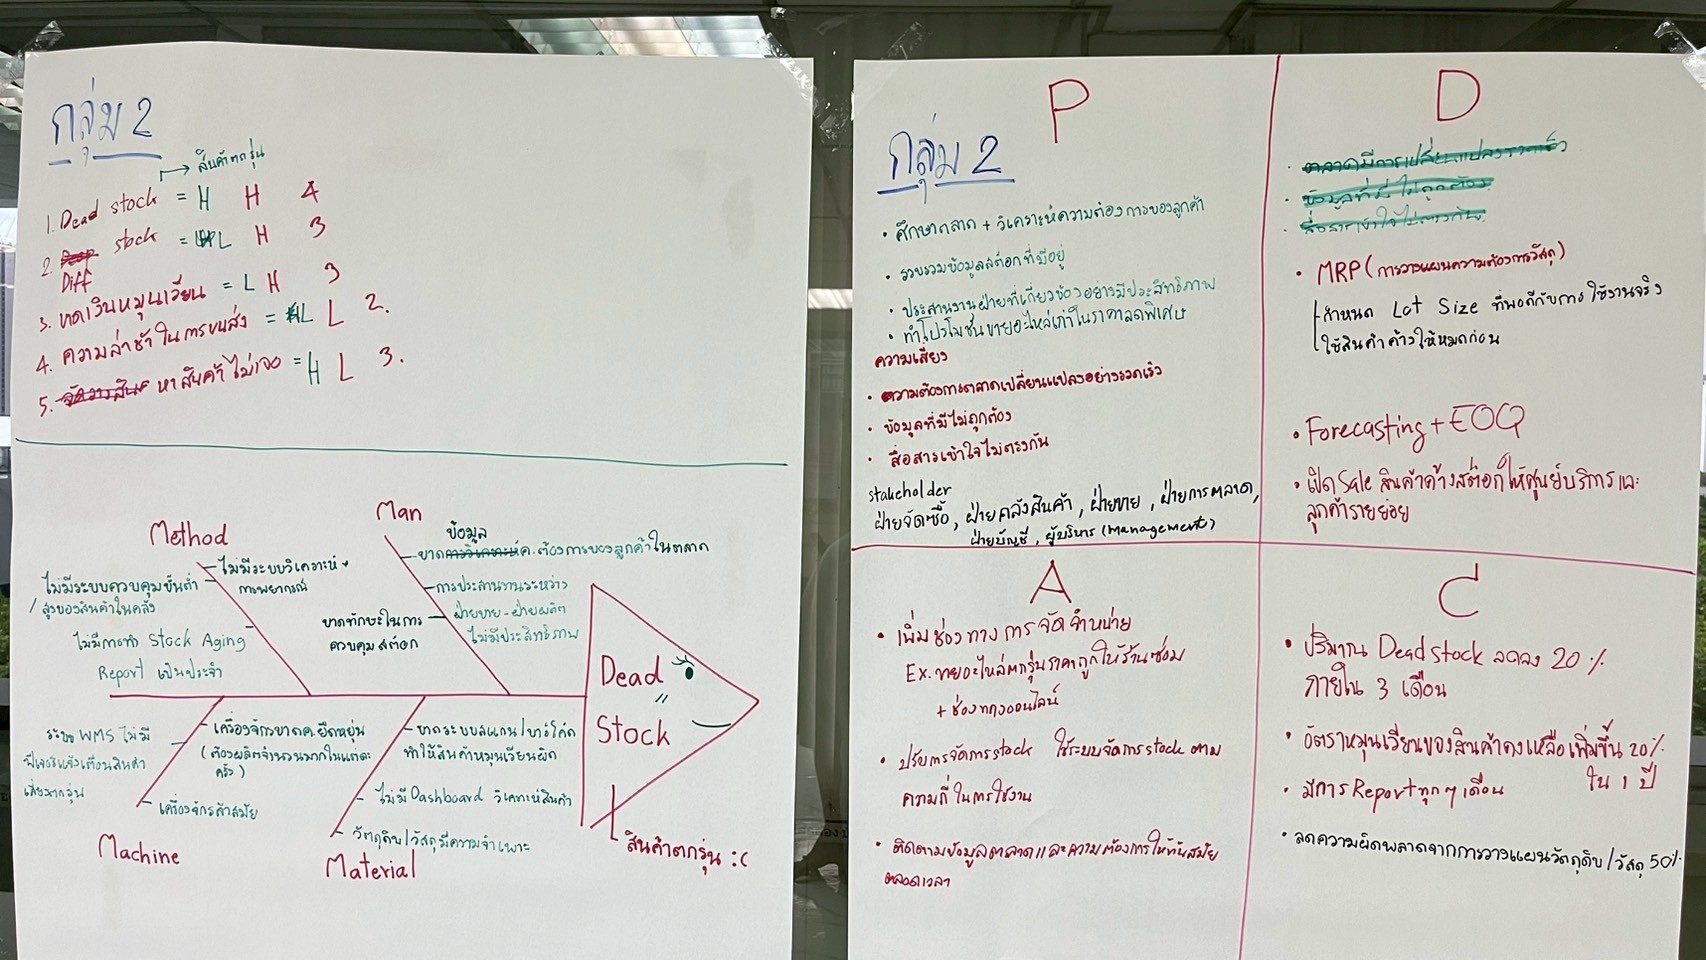 กลุ่ม 2
→ สินค้าตกรุ่น
1. Dead stock = H H 4
2. Diff stock = L H 3
3. ขาดเงินหมุนเวียน = L H 3
4. ความล่าช้าในการขนส่ง = L L 2.
5. หาสินค้าไม่เจอ = H L 3.
Method
ไม่มีระบบวิเคราะห์ + การพยากรณ์
ไม่มีระบบควบคุมขั้นต่ำ
/ สูงของสินค้าในคลัง
ไม่มีการทำ Stock Aging
Report เป็นประจำ
Man
ข้อมูล
ขาด ค.ต้องการของลูกค้าในตลาด
การประสานงานระหว่าง
ฝ่ายขาย - ฝ่ายผลิต
ไม่มีประสิทธิภาพ
ขาดทักษะในการ
ควบคุมสต๊อก
Dead
Stock
สินค้าตกรุ่น :(
ระบบ WMS ไม่มี
ฟีเจอร์แจ้งเตือนสินค้า
เสี่ยงตกรุ่น
เครื่องจักรขาดค.ยืดหยุ่น
(ต้องผลิตจำนวนมากในแต่ละ
ครั้ง)
เครื่องจักรล้าสมัย
Machine
ขาดระบบสแกน/บาร์โค้ด
ทำให้สินค้าหมุนเวียนผิด
ไม่มี Dashboard วิเคราะห์สินค้า
วัตถุดิบ/วัสดุมีความจำเพาะ
Material
P
กลุ่ม 2
• ศึกษาตลาด + วิเคราะห์ความต้องการของลูกค้า
• รวบรวมข้อมูลสต๊อกที่มีอยู่
• ประสานงานฝ่ายที่เกี่ยวข้องอย่างมีประสิทธิภาพ
• ทำโปรโมชั่นขายอะไหล่เก่าในราคาลดพิเศษ
ความเสี่ยง
• ความต้องการตลาดเปลี่ยนแปลงอย่างรวดเร็ว
• ข้อมูลที่มีไม่ถูกต้อง
• สื่อสารเข้าใจไม่ตรงกัน
stakeholder
ฝ่ายจัดซื้อ, ฝ่ายคลังสินค้า, ฝ่ายขาย, ฝ่ายการตลาด,
ฝ่ายบัญชี, ผู้บริหาร (Management)
D
• ตลาดมีการเปลี่ยนแปลงรวดเร็ว
• ข้อมูลที่มีไม่ถูกต้อง
• สื่อสารเข้าใจไม่ตรงกัน
• MRP (การวางแผนความต้องการวัสดุ)
กำหนด Lot Size ที่พอดีกับการใช้งานจริง
ใช้สินค้าค้างให้หมดก่อน
• Forecasting + EOQ
• เปิด Sale สินค้าค้างสต๊อกให้ศูนย์บริการและ
ลูกค้ารายย่อย
A
• เพิ่มช่องทางการจัดจำหน่าย
Ex. ขายอะไหล่ตกรุ่นราคาถูกให้ร้านซ่อม
+ ช่องทางออนไลน์
• ปรับการจัดการ stock ใช้ระบบจัดการ stock ตาม
ความถี่ในการใช้งาน
• ติดตามข้อมูลตลาดและความต้องการให้ทันสมัย
ตลอดเวลา
C
• ปริมาณ Dead stock ลดลง 20 %
ภายใน 3 เดือน
• อัตราหมุนเวียนของสินค้าคงเหลือเพิ่มขึ้น 20%
ใน 1 ปี
• มีการ Report ทุกๆเดือน
• ลดความผิดพลาดจากการวางแผนวัตถุดิบ/วัสดุ 50%